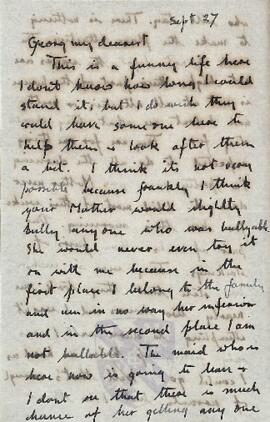 Sept. 27
Georg my dearest
This is a funny life here
I don't know how long I could
stand it, but I do wish they
could have someone here to
help them & look after them
a bit. I think it's not very
possible because frankly I think
your Mother would slightly
bully any one who was bullyable.
She would never even try it
on with me because in the
first place I belong to the family
and am in no way her inferior
and in the second place I am
not bullable. The maid who is
here now is going to leave &
I dont see that there is much
chance of her getting any one